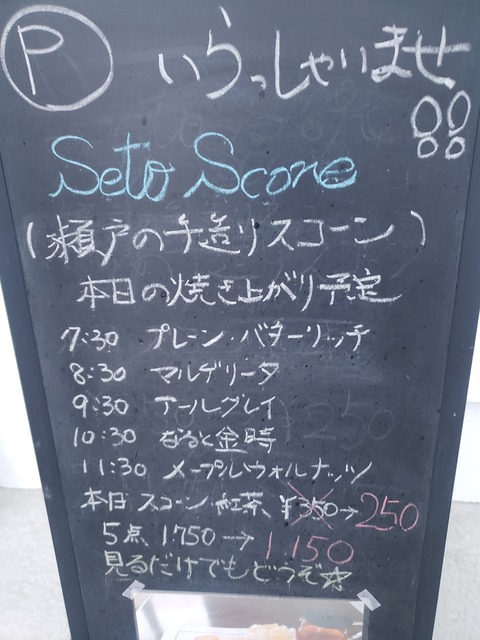 P いらっしゃいませ!!
Seto Scone
(瀬戸の手造りスコーン)
本日の焼き上がり予定
7:30 プレーン・バターリッチ
8:30 マルゲリータ
9:30 アールグレイ
10:30 なると金時
11:30 メープルウォルナッツ
本日 スコーン・紅茶、¥350→250
5点 1750→1150
見るだけでもどうぞ☆